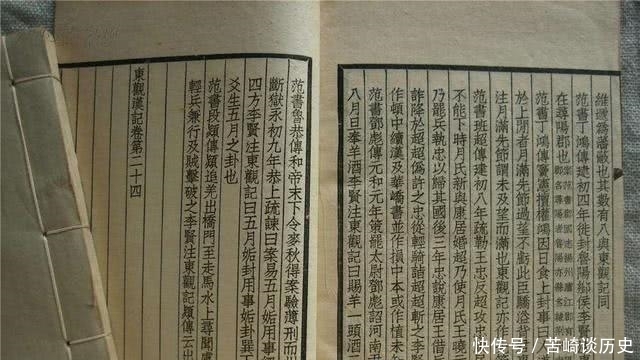 為潘敵也其數有八與東觀記同
范書丁鴻傳建初四年徙封魯陽鄉侯李賢
在尋陽郡也
范書丁鴻傳竇憲擅權鴻因日食上封事曰
於上閒者月滿先節過望不虧此臣驕溢背
注月滿先節謂未及望而滿也東觀記亦作
范書班超傳建初八年疏勒王忠反超攻忠
不能下時月氏新與康居婚超乃使月氏王曉
乃罷兵執忠以歸其國後三年忠說康居王借
詐降於超超偽許之忠從輕騎詣超超斬
作頓中續漢及華嶠書並作損中本或作植未
范書鄧彪傳元和元年策罷太尉鄧彪詔河南
八月旦奉羊酒李賢注東觀記曰賜羊一頭酒
范書魯恭傳和帝末下令麥秋得案驗薄刑而
斷獄永初九年恭上疏諫曰案易五月姤用事
四方李賢注東觀記曰五月姤卦用事姤卦巽
爻生五月之卦也
范書段熲傳熲追羌出橋門至走馬水上尋聞
輕兵兼行及賊擊破之李賢注東觀記熲傳云出
東觀漢記卷第二十四
快传号/苦崎谈历史